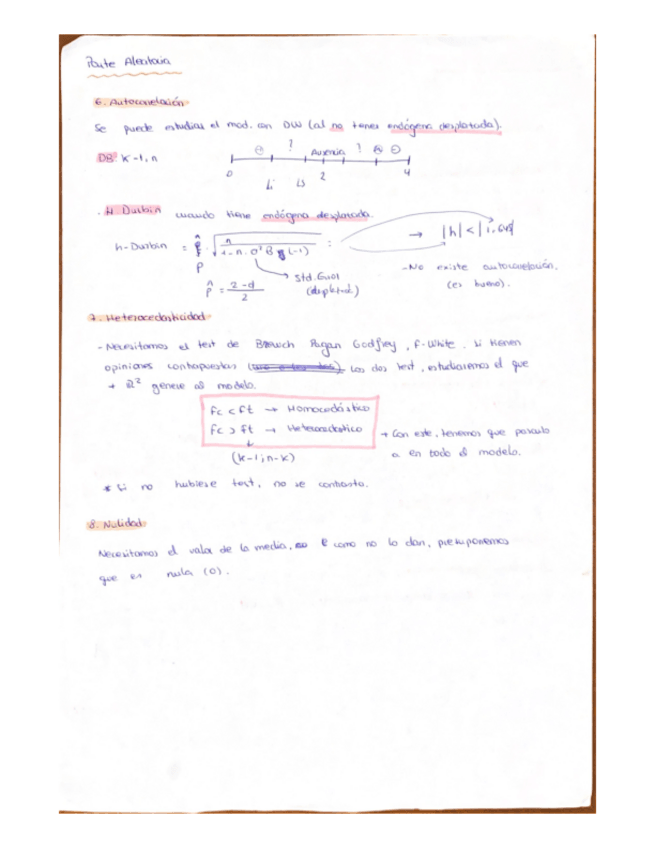 Parte Aleatoria
6. Autocorrelación
Se puede estudiar el mod. con DW (al no tener endógena desplazada).
DB: k-1, n
+ ? Ausencia ? -
0 Li Ls 2 4
. H Durbin cuando tiene endógena desplazada.
h-Durbin = ρ̂ · √ n / 1-n·σ²β (-1) : → |h| < |1,64|
ρ̂ = 2-d / 2
std. Error
- No existe autocorrelación.
(es bueno).
7. Heterocedasticidad
- Necesitamos el test de Breusch Pagan Godfrey, F-White. Si tienen
opiniones contrapuestas los dos test, estudiaremos el que
+ R² genere al modelo.
Fc < Ft → Homocedástico
Fc > Ft → Heterocedástico
(k-1; n-k)
→ Con este, tenemos que
a en todo el modelo.
* Si no hubiese test, no se contrasta.
8. Nulidad
Necesitamos el valor de la media, como no lo dan, presuponemos
que es nula (0).